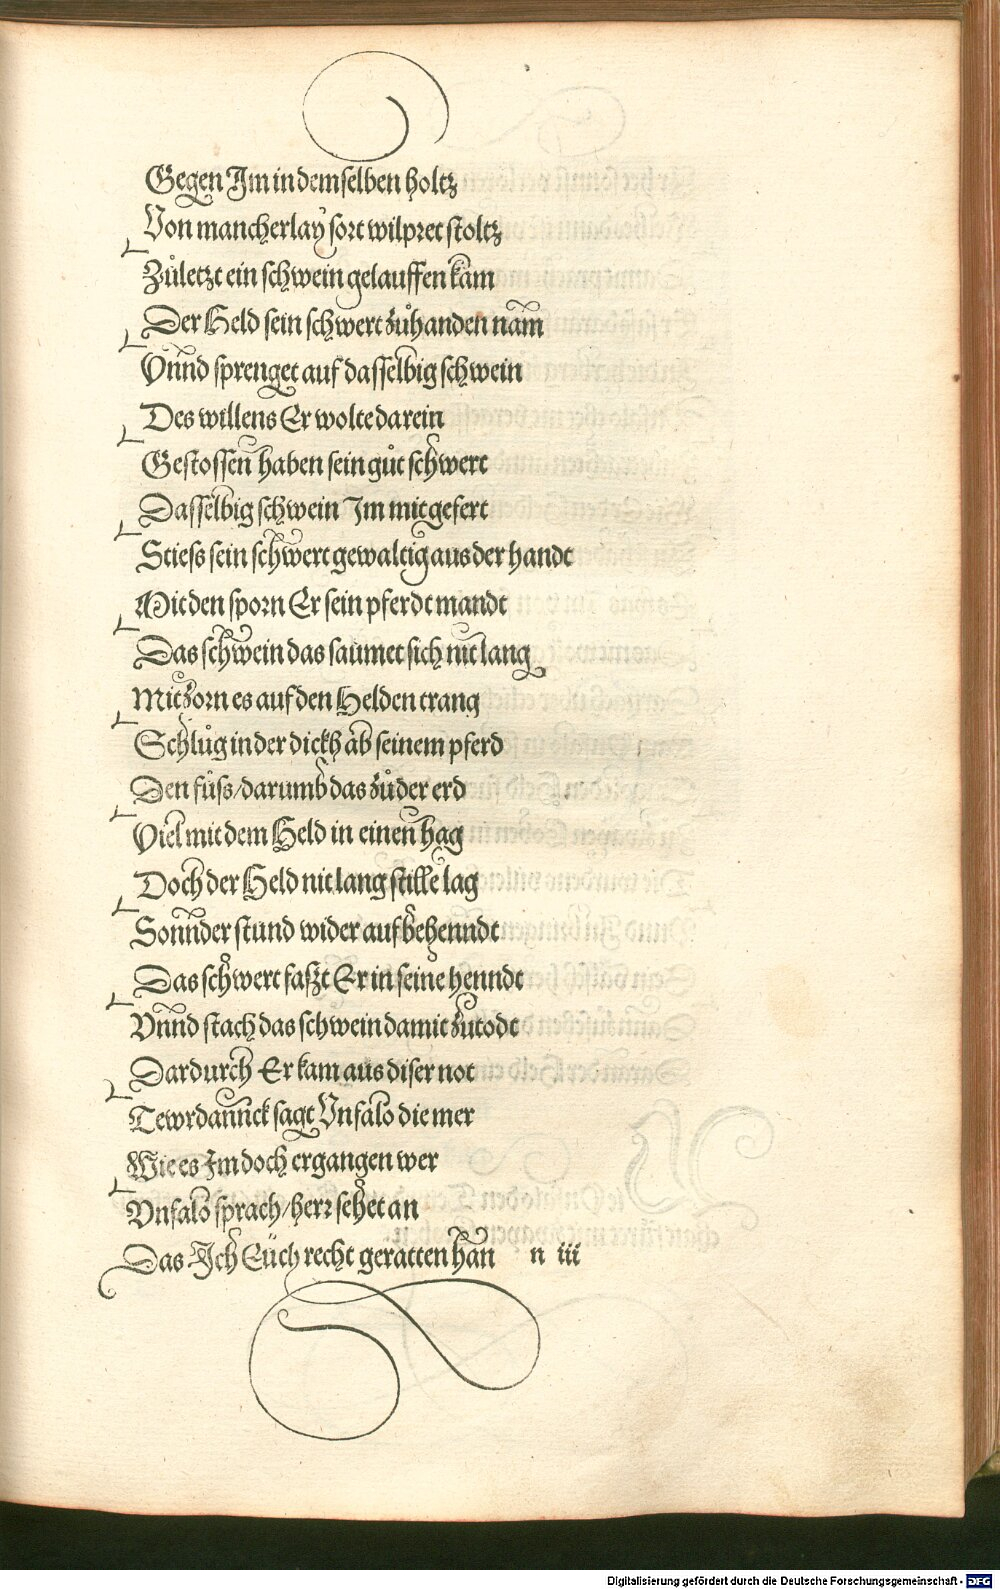 Gegen Im in demselben holtz
Von mancherlay sort wilpret stoltz
Zůletzt ein schwein gelauffen kam
Der Held sein schwert zůhanden nam
Vnnd sprenget auf dasselbig schwein
Des willens Er wolte darein
Gestossen haben sein gůt schwert
Dasselbig schwein Im mit gefert
Stiess sein schwert gewaltig aus der handt
Mit den sporn Er sein pferdt mandt
Das schwein das saumet sich nit lang
Mit zorn es auf den Helden trang
Schlůg in der dickh ab seinem pferd
Den fůss/darumb das zůder erd
Viel mit dem Held in einen hag
Doch der Held nit lang stille lag
Sonnder stund wider auf behenndt
Das schwert faszt Er in seine henndt
Vnnd stach das schwein damit zutodt
Dardurch Er kam aus diser not
Tewrdannck sagt Vnfalo die mer
Wie es Im doch ergangen wer
Vnfalo sprach/herr sehet an
Das Ich Eüch recht geratten han n iii
Digitalisierung gefördert durch die Deutsche Forschungsgemeinschaft - DFG